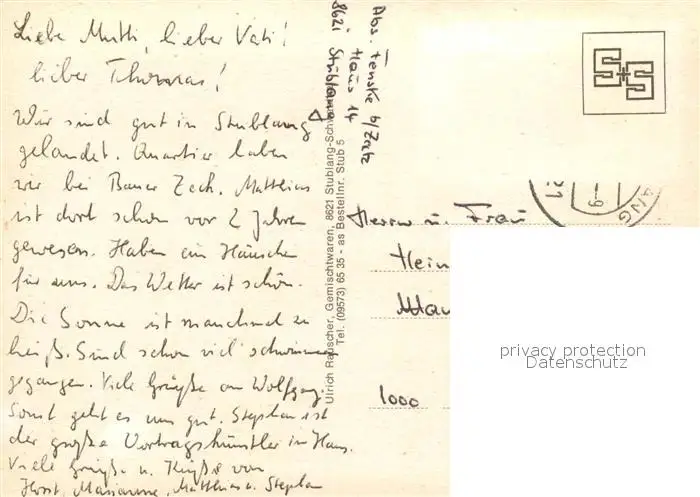 Liebe Mutti, lieber Vati!
lieber Thomas!
Wir sind gut in Stublang
gelandet. Quartier haben
wir bei Bauer Zach. Matthias
ist dort schon vor 2 Jahren
gewesen. Haben ein Häuschen
für uns. Das Wetter ist schön.
Die Sonne ist manchmal zu
heiß. Sind schon viel schwimmen
gegangen. Viele Grüße an Wolfgang.
Sonst geht es uns gut. Stephan ist
der große Vortragskünstler im Haus.
Viele Grüße u. Küsse von
Horst, Marianne, Matthias u. Stephan
Ulrich Rauscher, Gemischtwaren, 8621 Stublang-
Tel. (09573) 65 35 - as Bestellnr. Stub 5
Abs. Fenske b/Zach
Haus 14
8621 Stublang
S+S
Herrn u. Frau
Hein
1000
privacy protection
Datenschutz